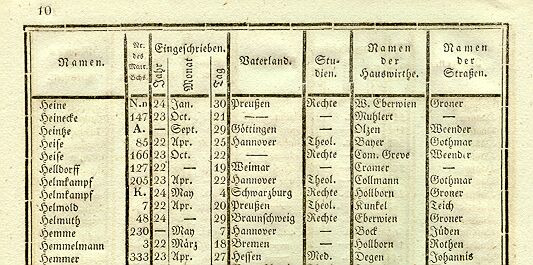 10
Namen. Nr. des Matr. Bchs. Eingeschrieben. Jahr Monat Tag Vaterland. Stu-dien. Namen der Hauswirthe. Namen der Straßen.
Heine N.n 24 Jan. 30 Preußen Rechte W. Eberwien Groner
Heinecke 147 23 Oct. 21 — — Muhlert —
Heintze A. — Sept. 29 Göttingen — Olzen Weender
Heise 85 22 Apr. 25 Hannover Theol. Bayer Gothmar
Heise 166 23 Oct. 22 — Rechte Com. Greve Weender
Helldorff 127 22 — 19 Weimar — Cramer —
Helmkampf 205 23 Apr. 22 Hannover Theol. Collmann Gothmar
Helmkampf R. 24 May 4 Schwarzburg Rechte Hollborn Groner
Helmold 7 22 Apr. 20 Preußen Theol. Kunkel Teich
Helmuth 48 24 — 29 Braunschweig Rechte Eberwien Groner
Hemme 230 — May 7 Hannover — Bock Jüden
Hemmelmann 3 22 März 18 Bremen — Hollborn Rothen
Hemmer 333 23 Apr. 27 Hessen Med. Degen Johannis